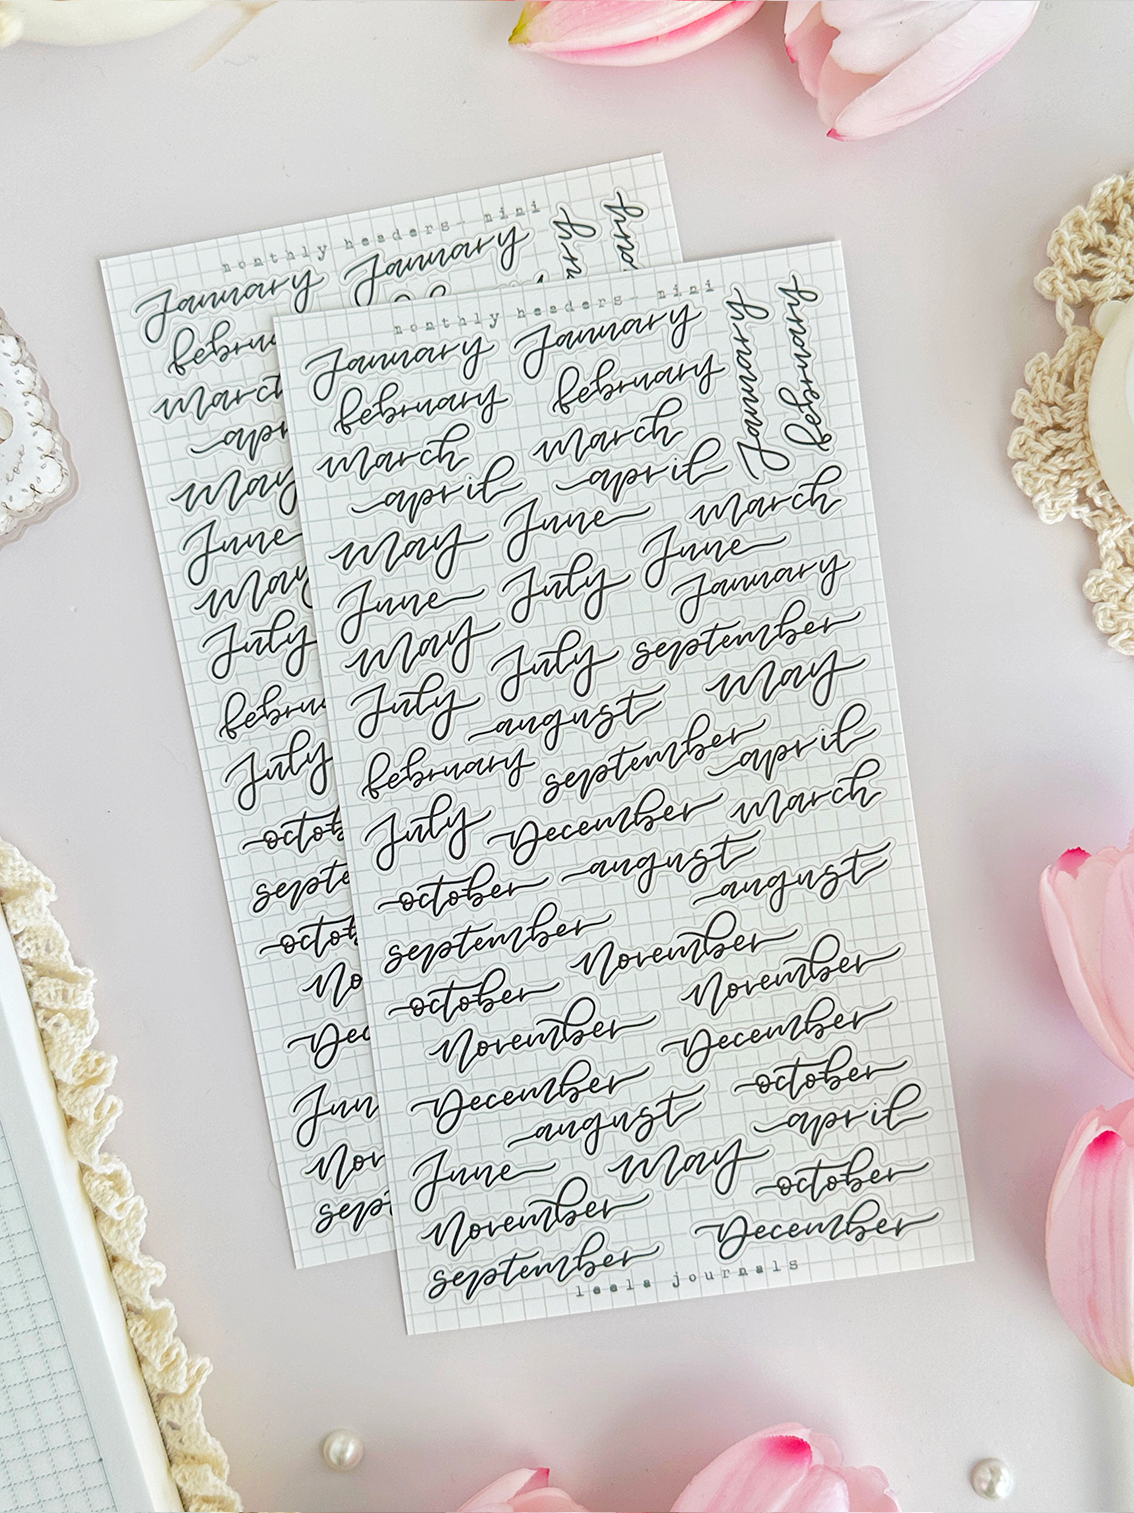 monthly headers - mini
January January
februa
march
apri
May
June
May
July
februa
July
octob
septe
octob
No
Dec
Jun
Nov
sept
monthly headers - mini
January January January february
february february
march march
april april
May June march
June July June
January
May July september
July august May
february september april
July December march
october august august
september November
october November
November December
December october
august april
June May october
November December
september
leela journals